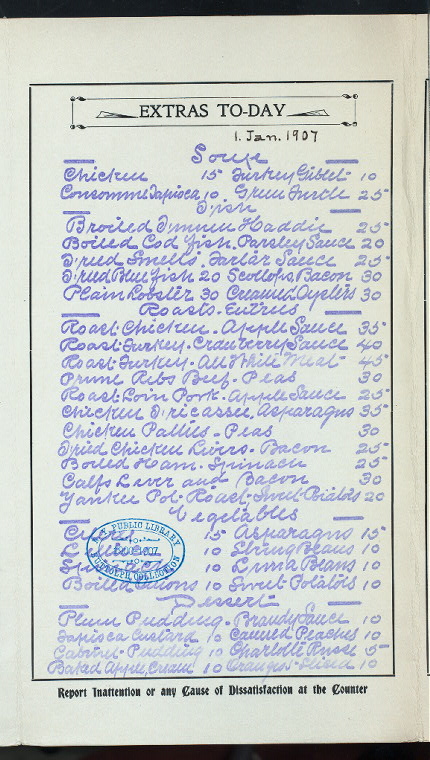 EXTRAS TO-DAY
1. Jan. 1907
Soup
Chicken 15 Turkey Giblet 10
Consomme Tapioca 10 Green Turtle 25
Fish
Broiled Finnen Haddie 25
Boiled Cod fish. Parsley Sauce 20
Fried Smelts. Tartar Sauce 25
Fried Blue fish 20 Scollops Bacon 30
Plain Lobster 30 Creamed Oysters 30
Roasts. Entrees
Roast Chicken. Apple Sauce 35
Roast Turkey. Cranberry Sauce 40
Roast Turkey. All White Meat 45
Prime Ribs Beef. Peas 30
Roast Loin Pork. Apple Sauce 25
Chicken Fricassee, Asparagus 35
Chicken Patties. Peas 30
Fried Chicken Livers. Bacon 25
Boiled Ham. Spinach 25
Calfs Liver and Bacon 30
Yankee Pot Roast. Sweet Potatos 20
Vegetables
15 Asparagus 15
10 String Beans 10
10 Lima Beans 10
Boiled Onions 10 Sweet Potatos 10
PUBLIC LIBRARY
COLLECTION
Dessert
Plum Pudding. Brandy Sauce 10
Tapioca Custard 10 Canned Peaches 10
Cabinet Pudding 10 Charlotte Russe 5
Baked Apple, Cream 10 Oranges Sliced 10
Report Inattention or any Cause of Dissatisfaction at the Counter